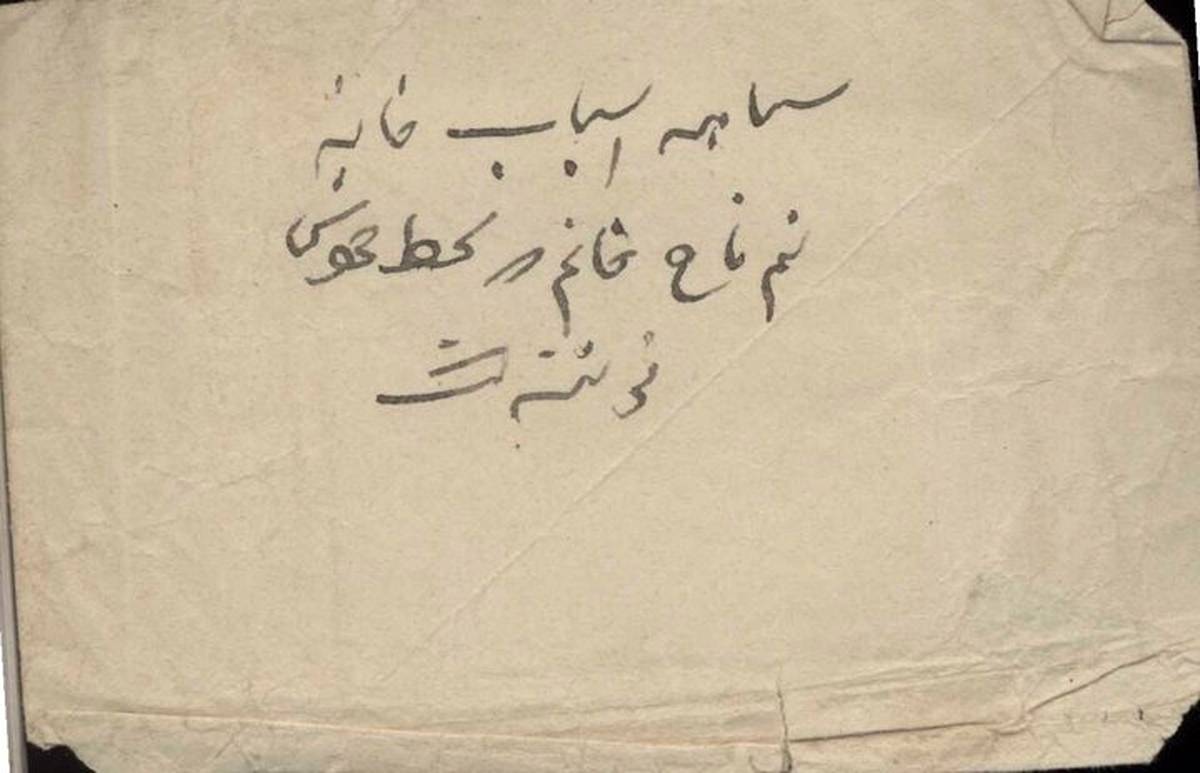 سیاهه اسباب خانه
نم تاج خانم در بخط خودش
نوشته است